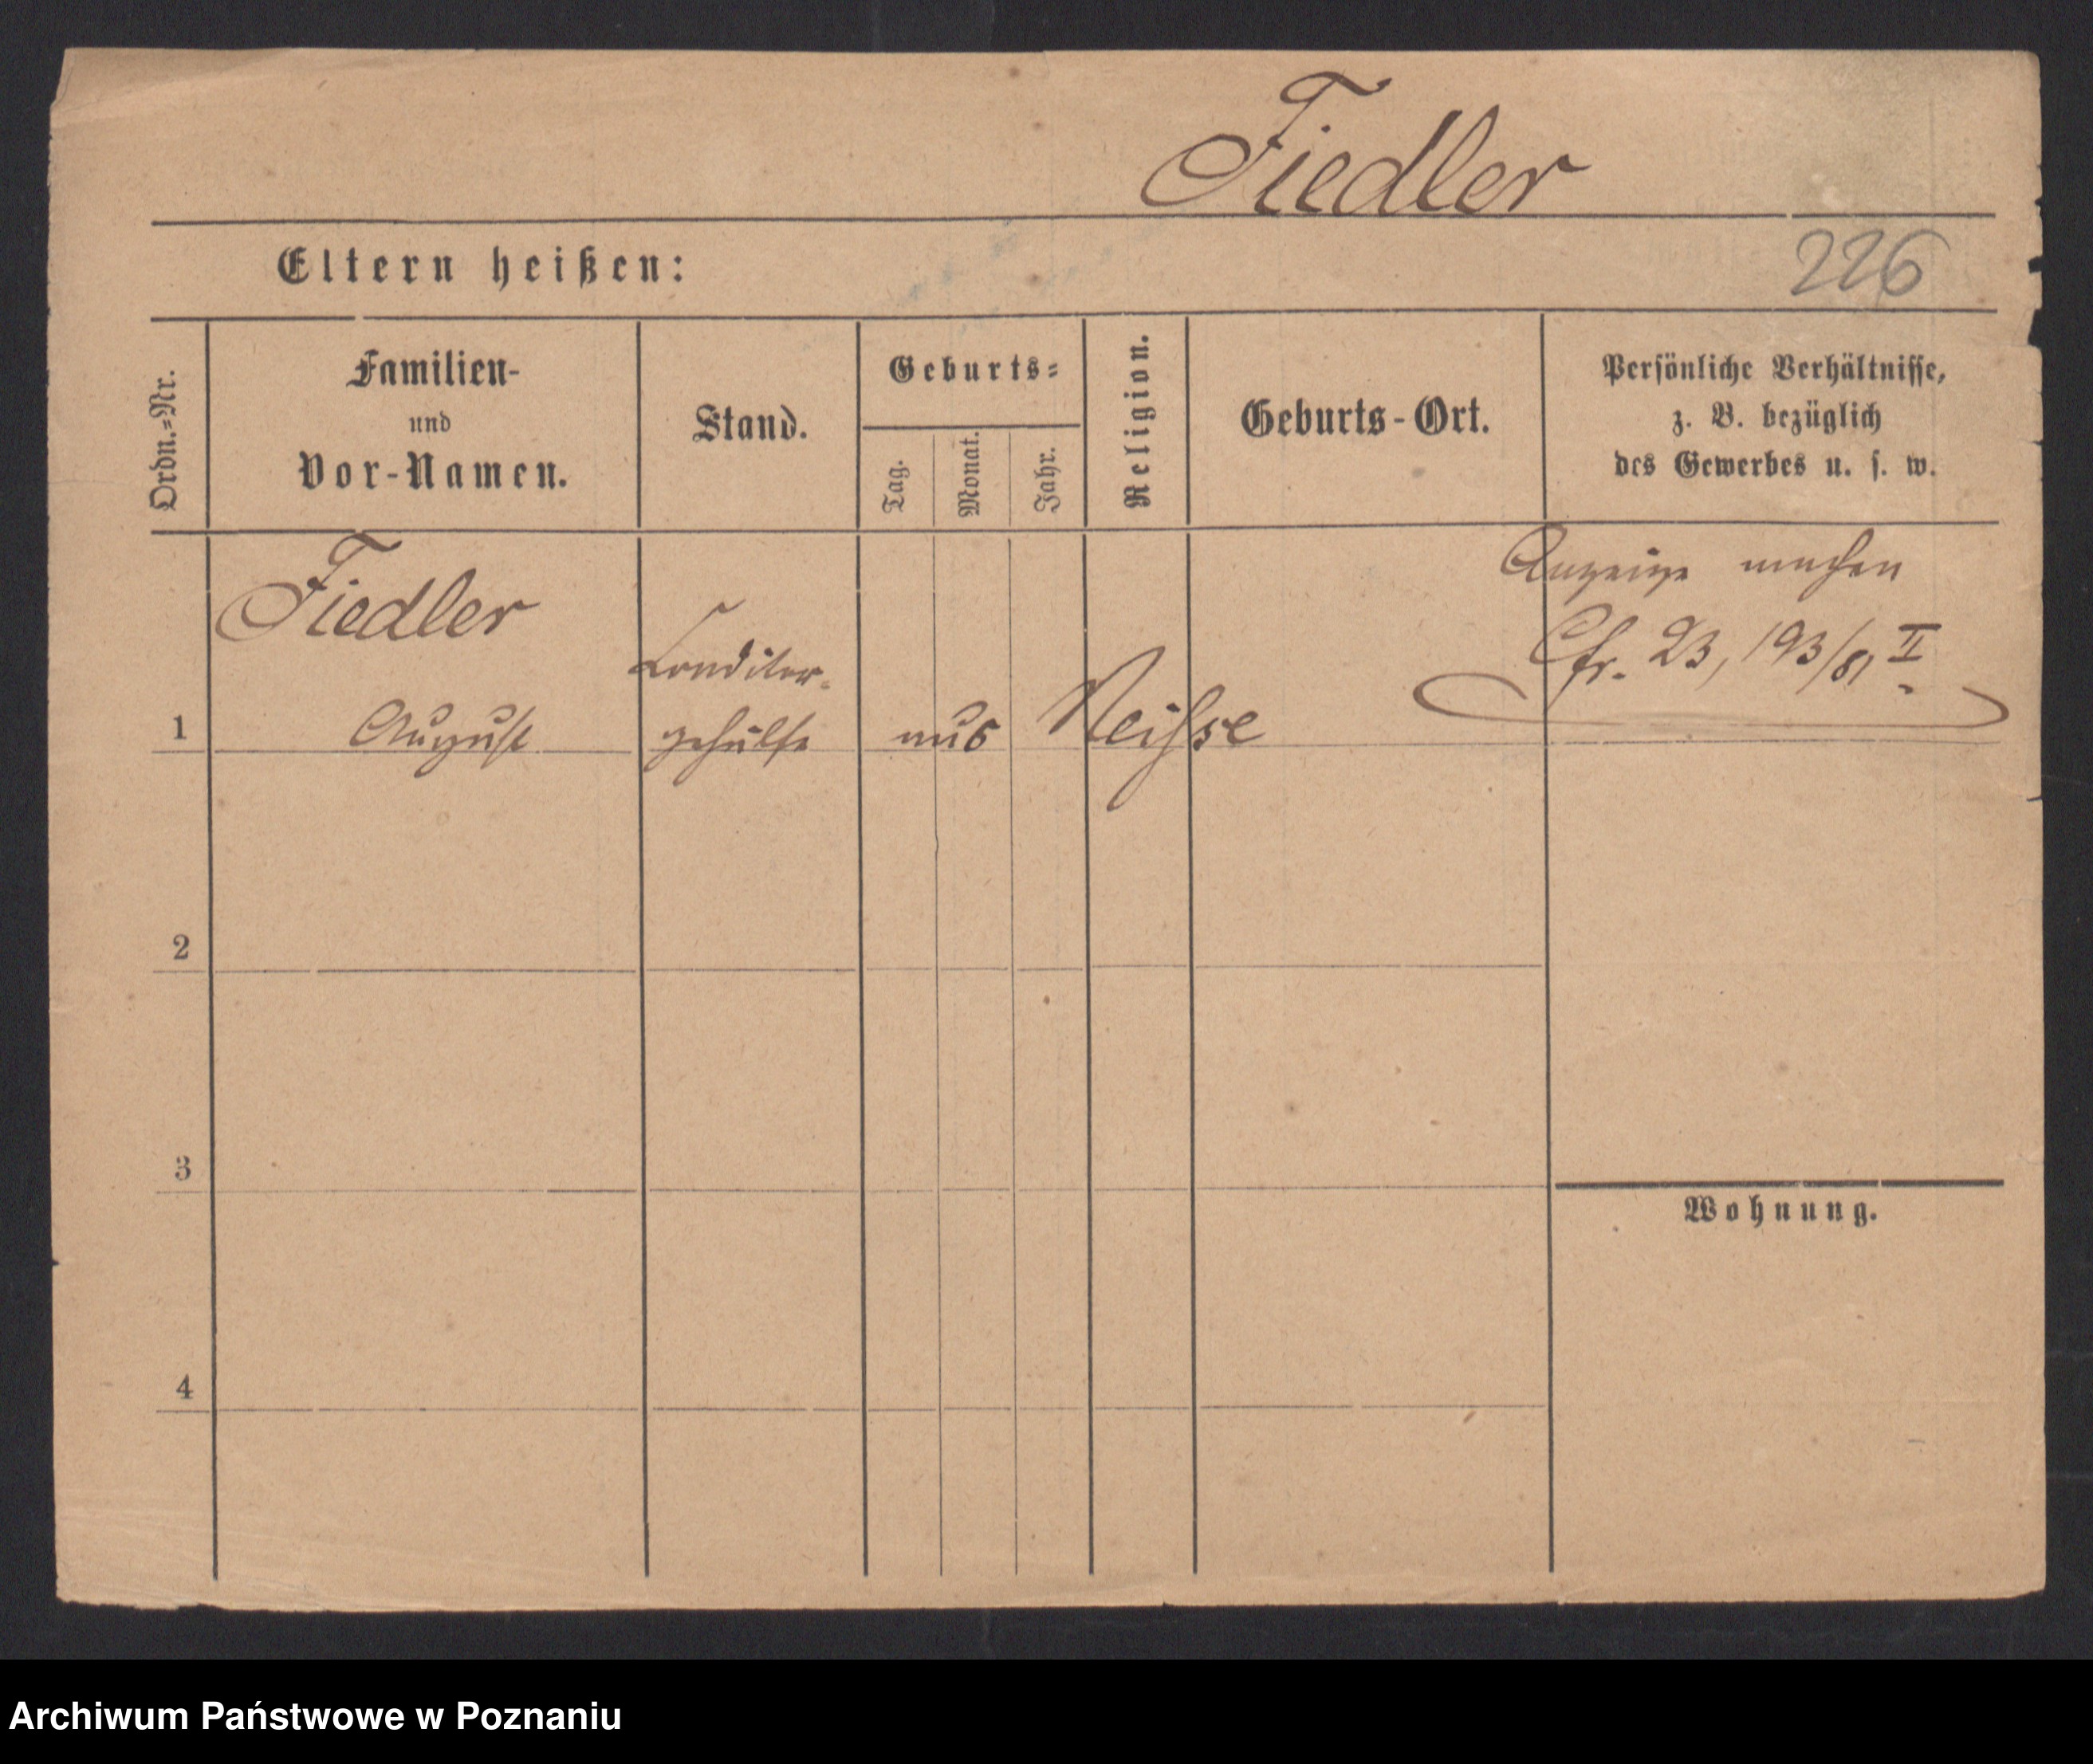 Fiedler
Eltern heißen:
226
Ordn.-Nr.
Familien-
und
Vor-Namen.
Stand.
Geburts-
Tag.
Monat.
Jahr.
Religion.
Geburts-Ort.
Persönliche Verhältnisse,
z. B. bezüglich
des Gewerbes u. s. w.
1
Fiedler
August
Conditor-
gehülfe
aus Neisse
Anzeige machen
Cfr. 23, 193/81 II.
2
3
Wohnung.
4
Archiwum Państwowe w Poznaniu